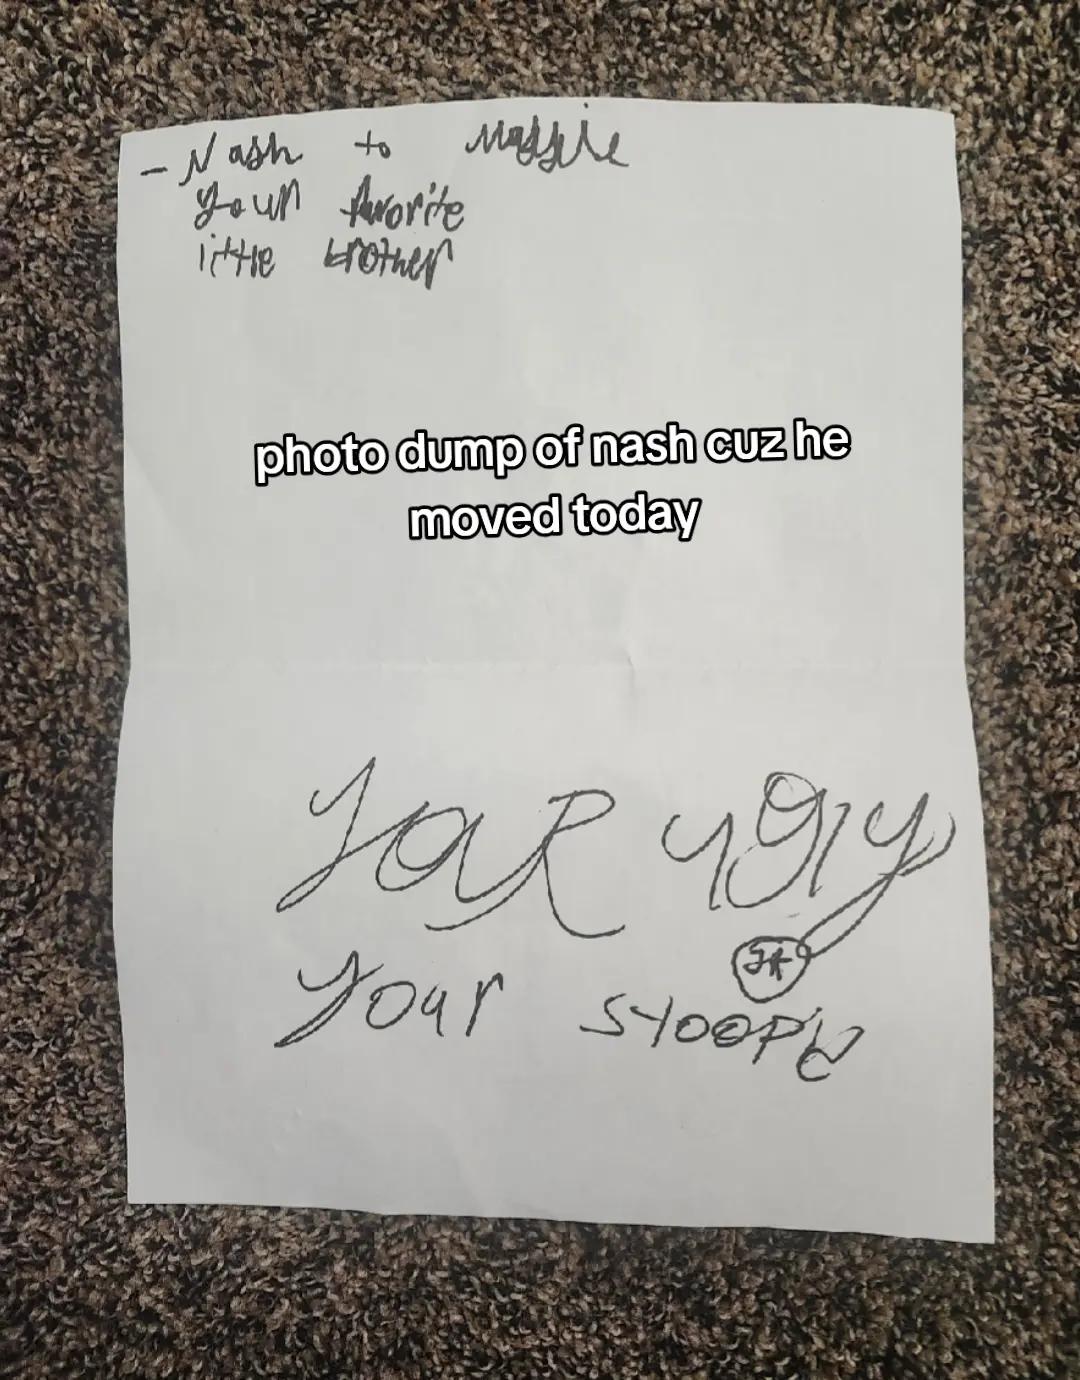 - Nash to Maggie
your favorite
little brother
photo dump of nash cuz he
moved today
your ugly
your stoopid